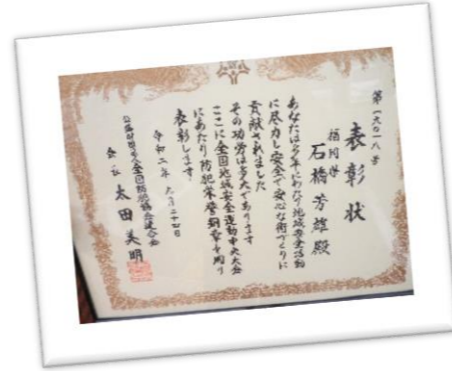 第一六〇一八号
表彰状
福岡県
石橋芳雄殿
あなたは多年にわたり地域安全活動
に尽力し安全で安心な街づくりに
貢献されました
その功労は多大であります
ここに全国地域安全運動中央大会
にあたり防犯栄誉銅章を贈り
表彰します
令和二年 九月二十四日
公益財団法人全国防犯協会連合会
会長 太田美明